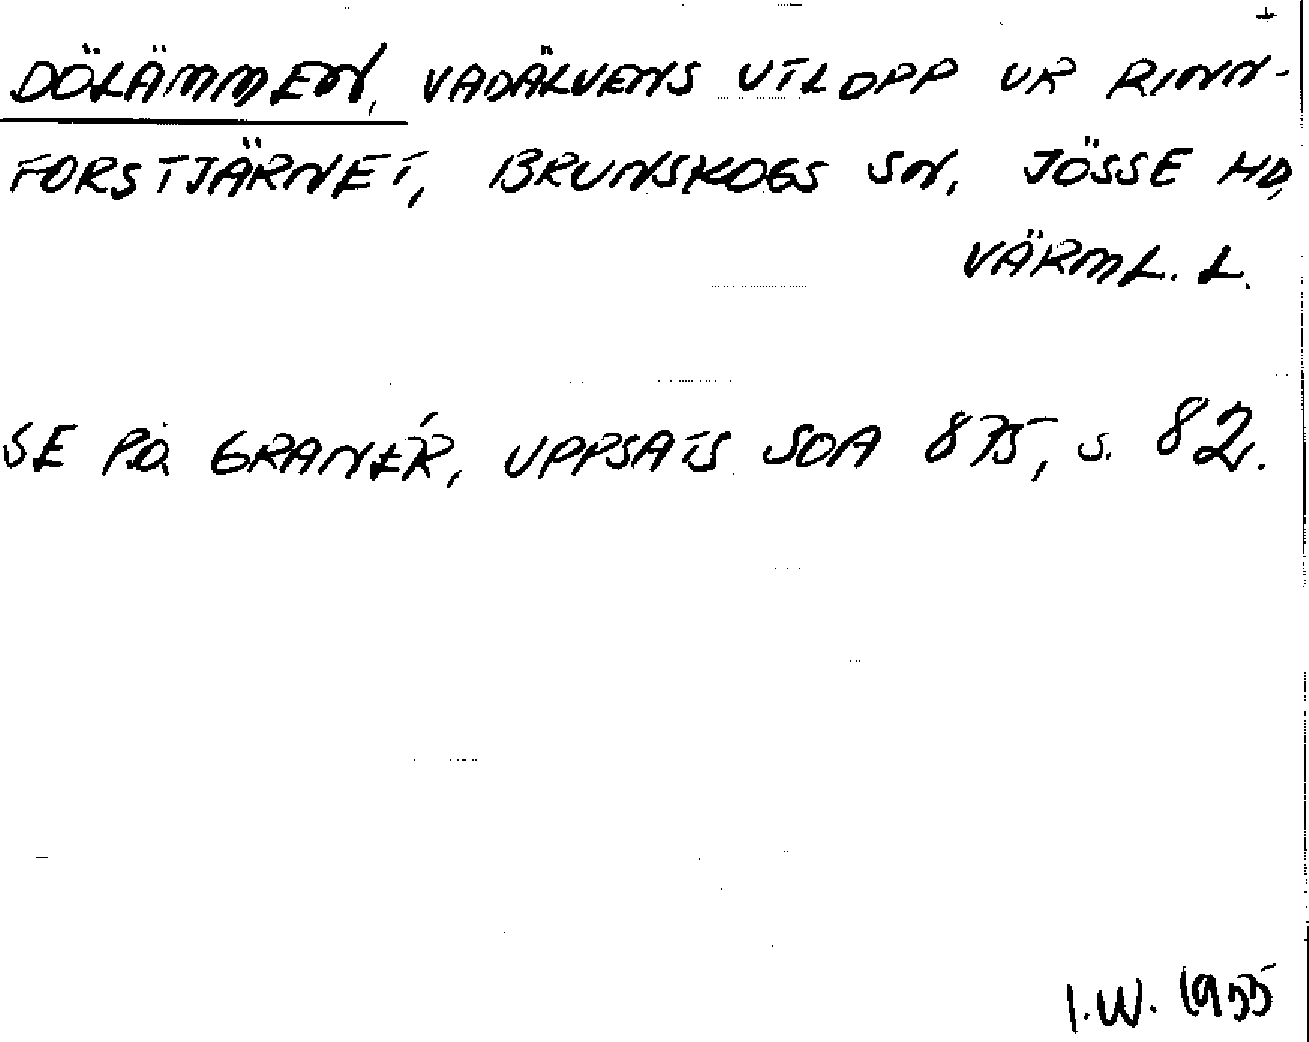 DÖLÄMMEN, VADÄLVENS UTLOPP UR RINN-
FORSTJÄRNET, BRUNSKOGS SN, JÖSSE HD,
VÄRML. L.
SE PÅ GRANÉR, UPPSATS SOA 875, S. 82.
I.W. 1955